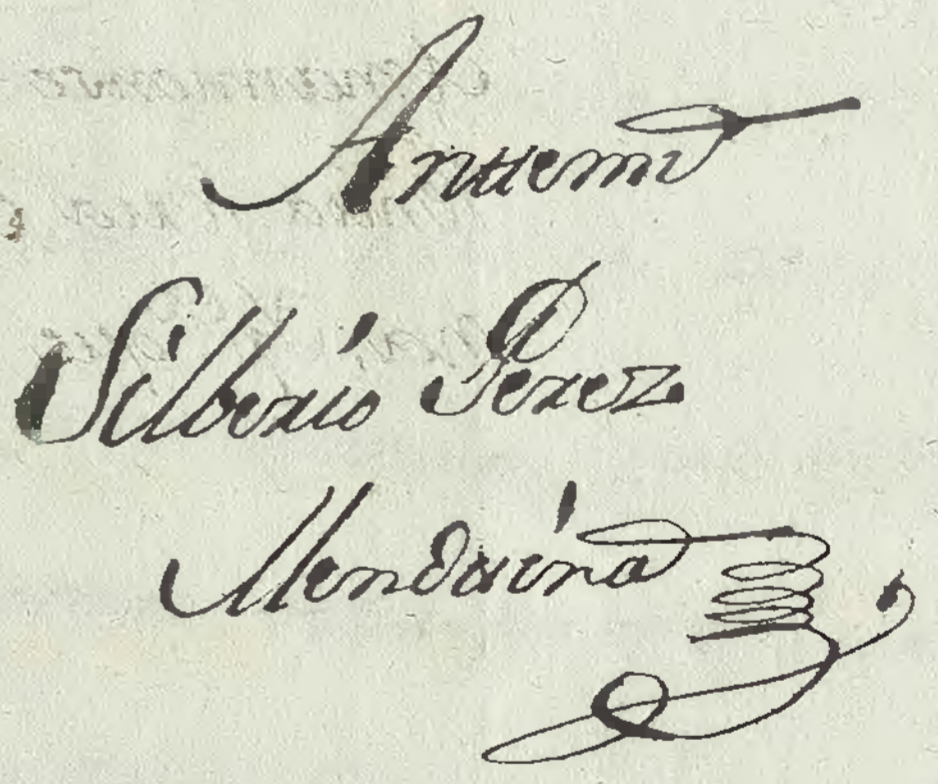 Antte mi
Silberio Perez
Mendaéna